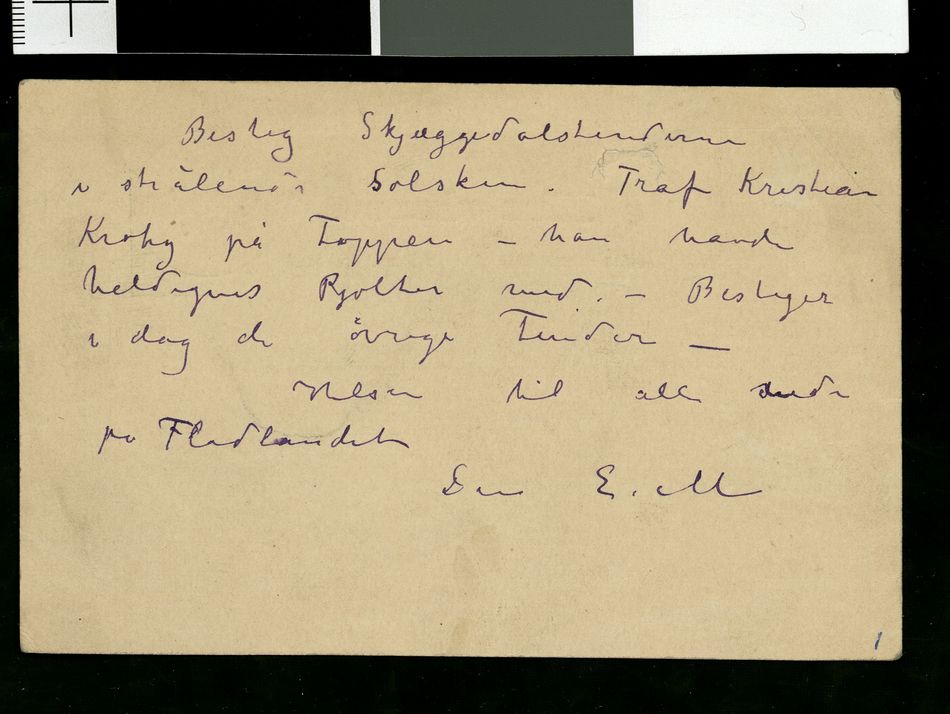 Besteg Skjæggedalstinderne
i strålende Solskin. Traf Kristian
Krohg på Toppen – han havde
heldigvis Pjolter med. – Bestiger
i dag de övrige Tinder —
Hilsen til alle
på Fladlandet
Din E. M
1